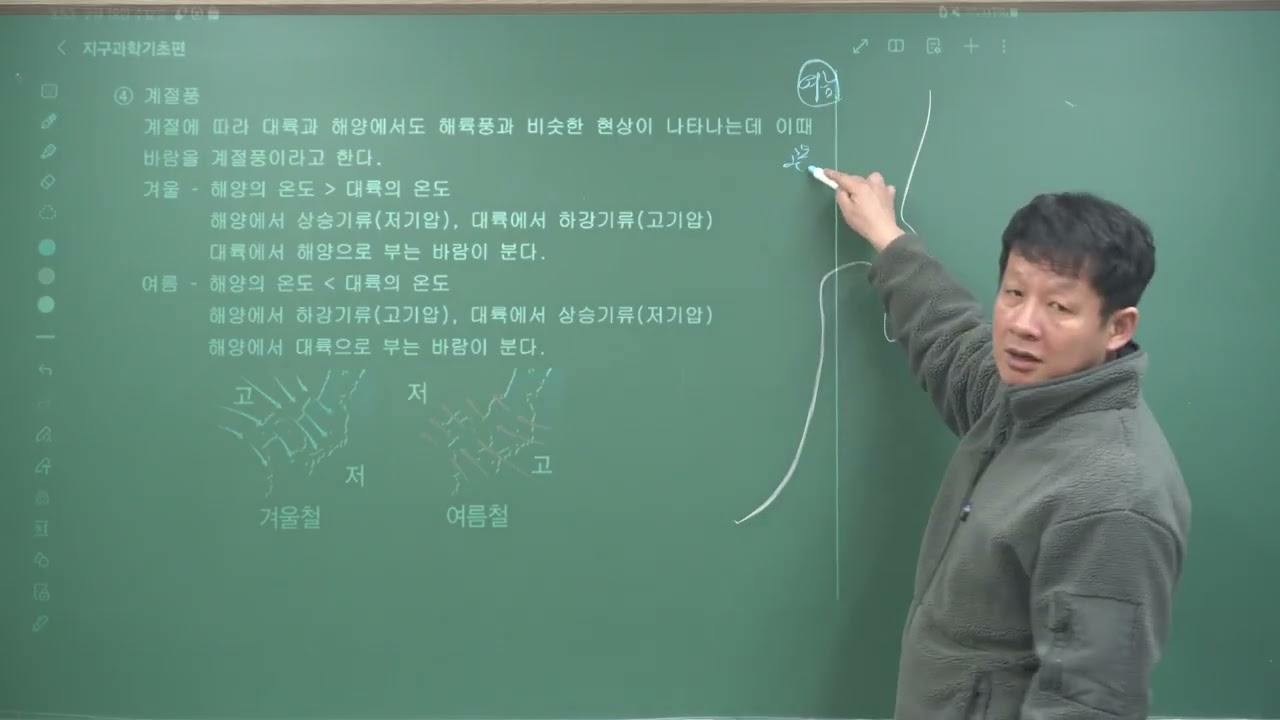 지구과학기초편
④ 계절풍
계절에 따라 대륙과 해양에서도 해륙풍과 비슷한 현상이 나타나는데 이때
바람을 계절풍이라고 한다.
겨울 - 해양의 온도 > 대륙의 온도
해양에서 상승기류(저기압), 대륙에서 하강기류(고기압)
대륙에서 해양으로 부는 바람이 분다.
여름 - 해양의 온도 < 대륙의 온도
해양에서 하강기류(고기압), 대륙에서 상승기류(저기압)
해양에서 대륙으로 부는 바람이 분다.
고 저
저 고
겨울철 여름철
여름